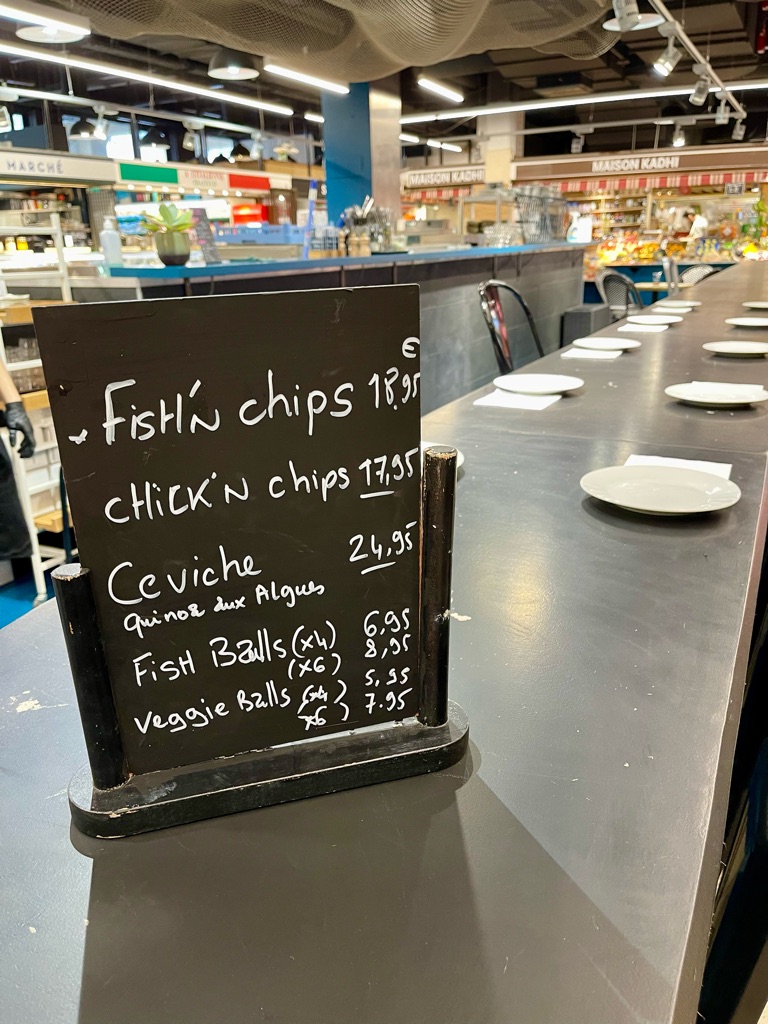 MARCHÉ
MAISON KADHI
MAISON KADHI
€
FISH'N chips 18,95
CHICK'N chips 17,95
Ceviche 24,95
Quinoa aux Algues
FISH Balls (x4) 6,95
(x6) 8,95
Veggie Balls (x4) 5,95
x6) 7.95